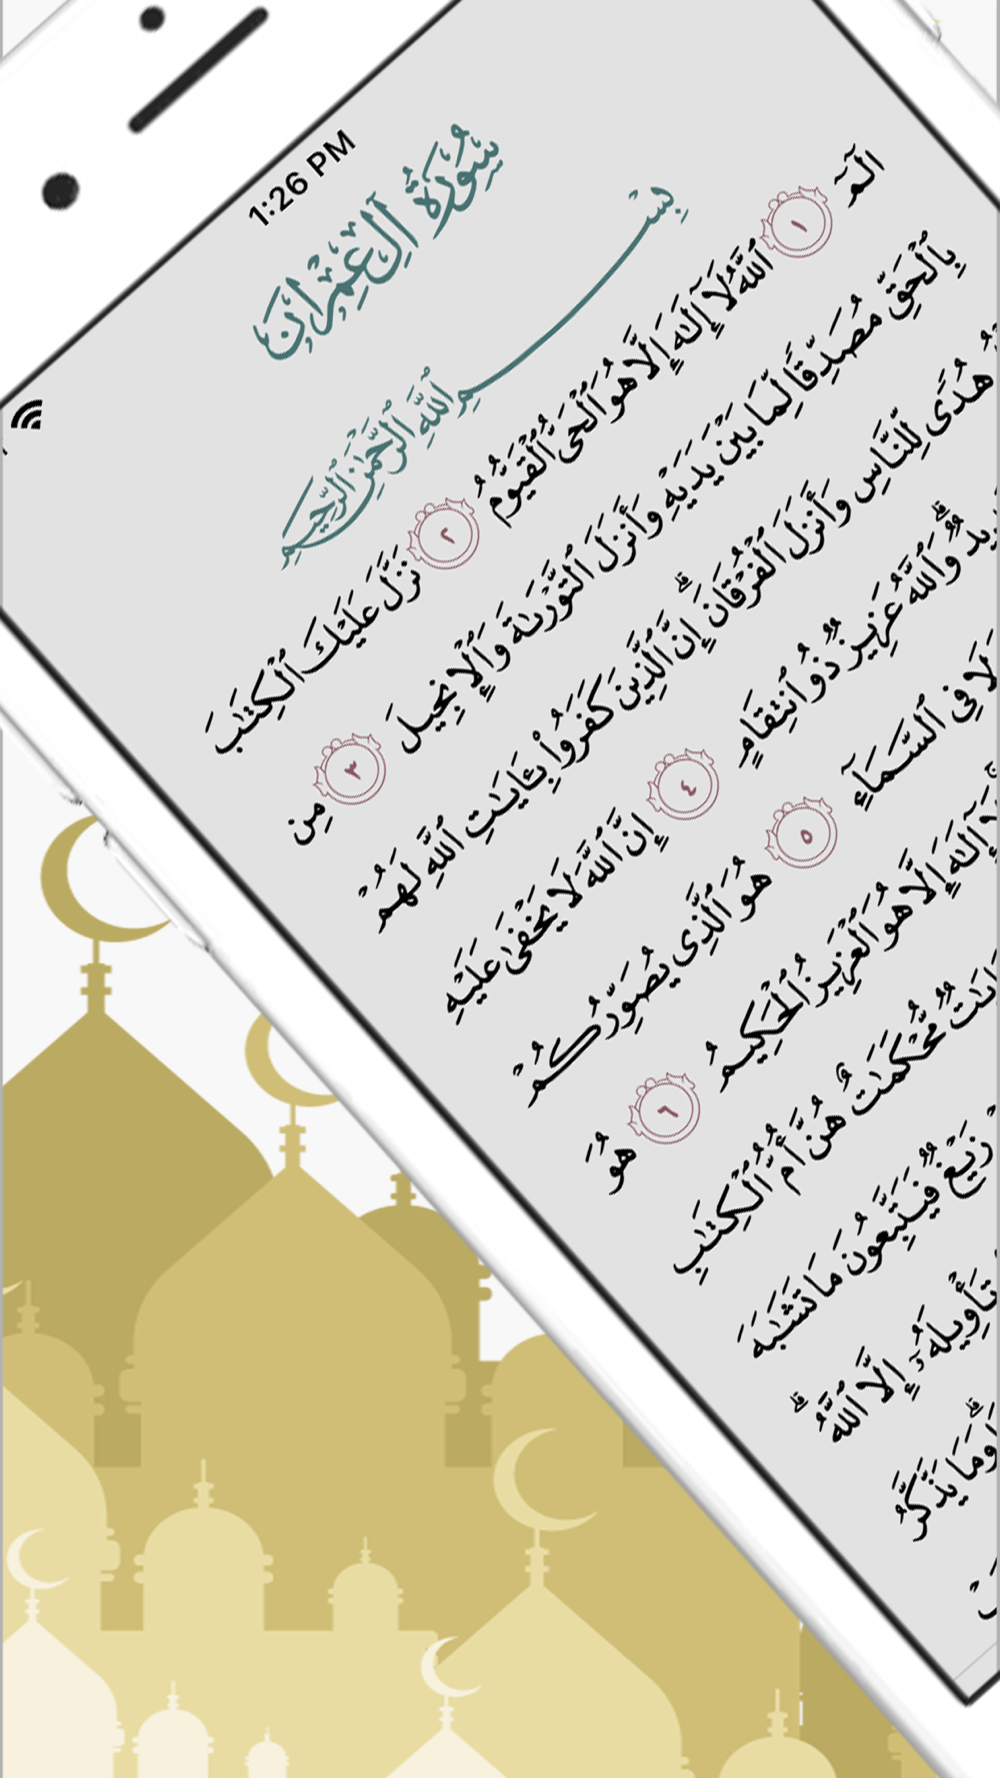 1:26 PM
سُورَةُ آلِ عِمْرَانَ
بِسْمِ ٱللَّهِ ٱلرَّحْمَٰنِ ٱلرَّحِيمِ
الٓمٓ ١ ٱللَّهُ لَآ إِلَٰهَ إِلَّا هُوَ ٱلْحَىُّ ٱلْقَيُّومُ ٢ نَزَّلَ عَلَيْكَ ٱلْكِتَٰبَ
بِٱلْحَقِّ مُصَدِّقًا لِّمَا بَيْنَ يَدَيْهِ وَأَنزَلَ ٱلتَّوْرَىٰةَ وَٱلْإِنجِيلَ ٣ مِن
هُدًى لِّلنَّاسِ وَأَنزَلَ ٱلْفُرْقَانَ ۗ إِنَّ ٱلَّذِينَ كَفَرُوا۟ بِـَٔايَٰتِ ٱللَّهِ لَهُمْ
وَٱللَّهُ عَزِيزٌ ذُو ٱنتِقَامٍ ٤ إِنَّ ٱللَّهَ لَا يَخْفَىٰ عَلَيْهِ
لَا فِى ٱلسَّمَآءِ ٥ هُوَ ٱلَّذِى يُصَوِّرُكُمْ
إِلَٰهَ إِلَّا هُوَ ٱلْعَزِيزُ ٱلْحَكِيمُ ٦ هُوَ
مُّحْكَمَٰتٌ هُنَّ أُمُّ ٱلْكِتَٰبِ
زَيْغٌ فَيَتَّبِعُونَ مَا تَشَٰبَهَ
تَأْوِيلَهُۥٓ إِلَّا ٱللَّهُ ۗ
وَمَا يَذَّكَّرُ